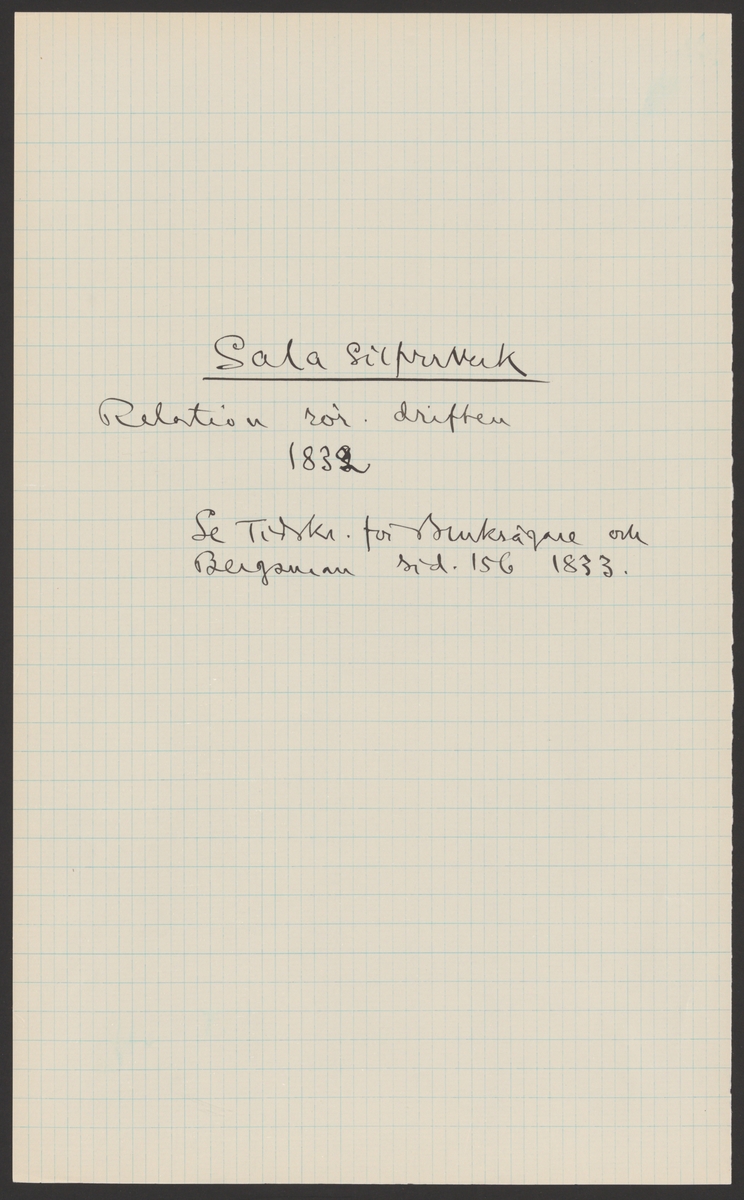 Sala Silfververk
Relation rör. driften
1832
Se Tidskr. för Bruksägare och
Bergsman sid. 156 1833.